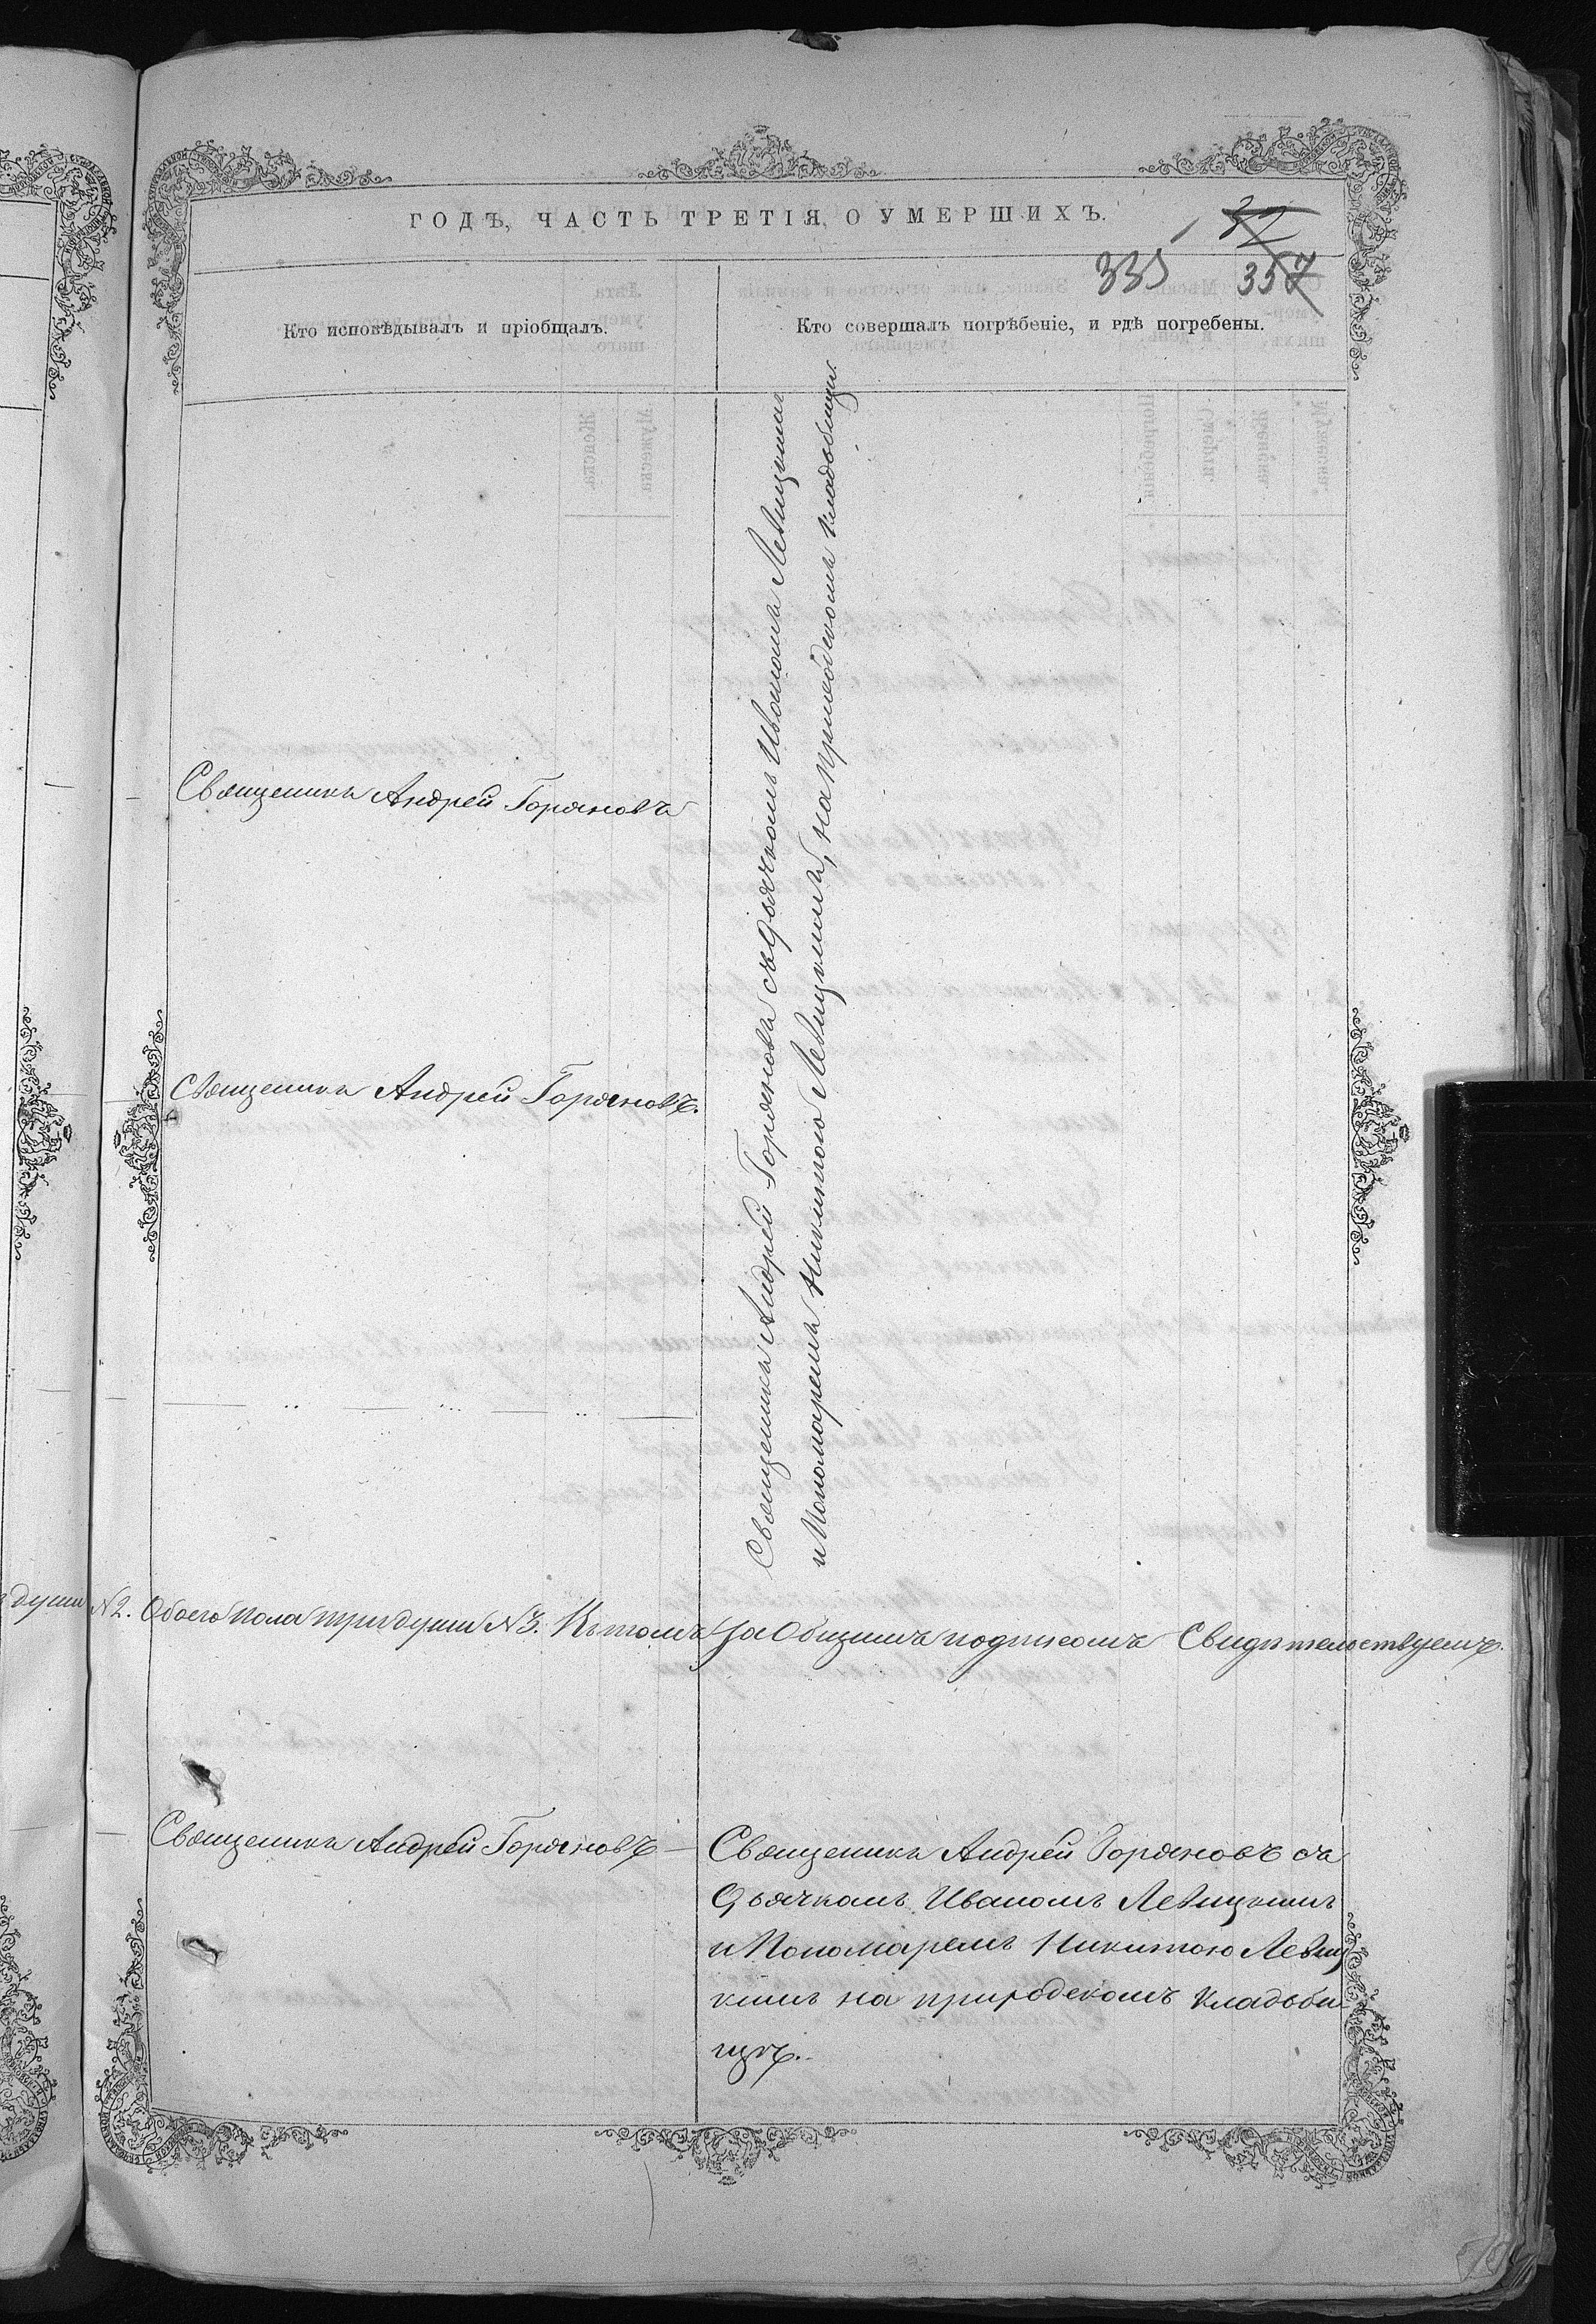 ГОДЪ, ЧАСТЬ ТРЕТІЯ, О УМЕРШИХЪ.
32
335 357
Кто исповѣдывалъ и пріобщалъ.
Кто совершалъ погрѣбеніе, и гдѣ погребены.
Священикъ Андрей Горяновъ
Священикъ Андрей Горяновъ.
Священикъ Андрей Горяновъ съ Дьячкомъ Иваномъ Левицкимъ
и Пономаремъ Никитою Левицкимъ, на приходскомъ кладьбищи.
души №2. Обоего пола три души №3. Въ томъ за Общимъ подписомъ Свидѣтельствуемъ.
Священикъ Андрей Горяновъ
Священикъ Андрей Горяновъ съ
Дьячкомъ Иваномъ Левицкимъ
и Пономаремъ Никитою Левиц
кимъ на приходскомъ кладьби
щѣ.